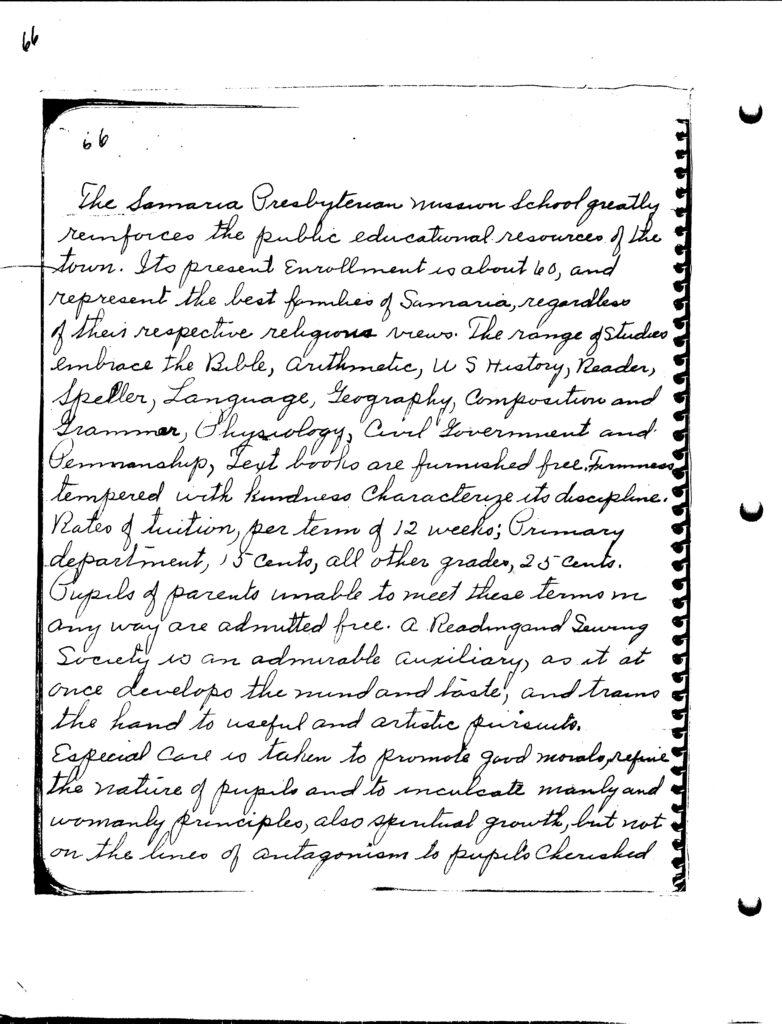 66
66
The Samaria Presbyterian Mission School greatly
reinforces the public educational resources of the
town. Its present Enrollment is about 60, and
represent the best families of Samaria, regardless
of their respective religious views. The range of Studies
embrace the Bible, Arithmetic, U S History, Reader,
Speller, Language, Geography, Composition and
Grammer, Physiology, Civil Government and
Penmanship, Text books are furnished free. Firmness
tempered with kindness Characterize its discipline.
Rates of tuition, per term of 12 weeks; Primary
department, 15 cents, all other grades, 25 cents.
Pupils of parents unable to meet these terms in
any way are admitted free. A Reading and Sewing
Society is an admirable auxiliary, as it at
once develops the mind and taste, and trains
the hand to useful and artistic pursuits.
Especial Care is taken to promote good morals, refine
the nature of pupils and to inculcate manly and
womanly principles, also spiritual growth, but not
on the lines of antagonism to pupils Cherished